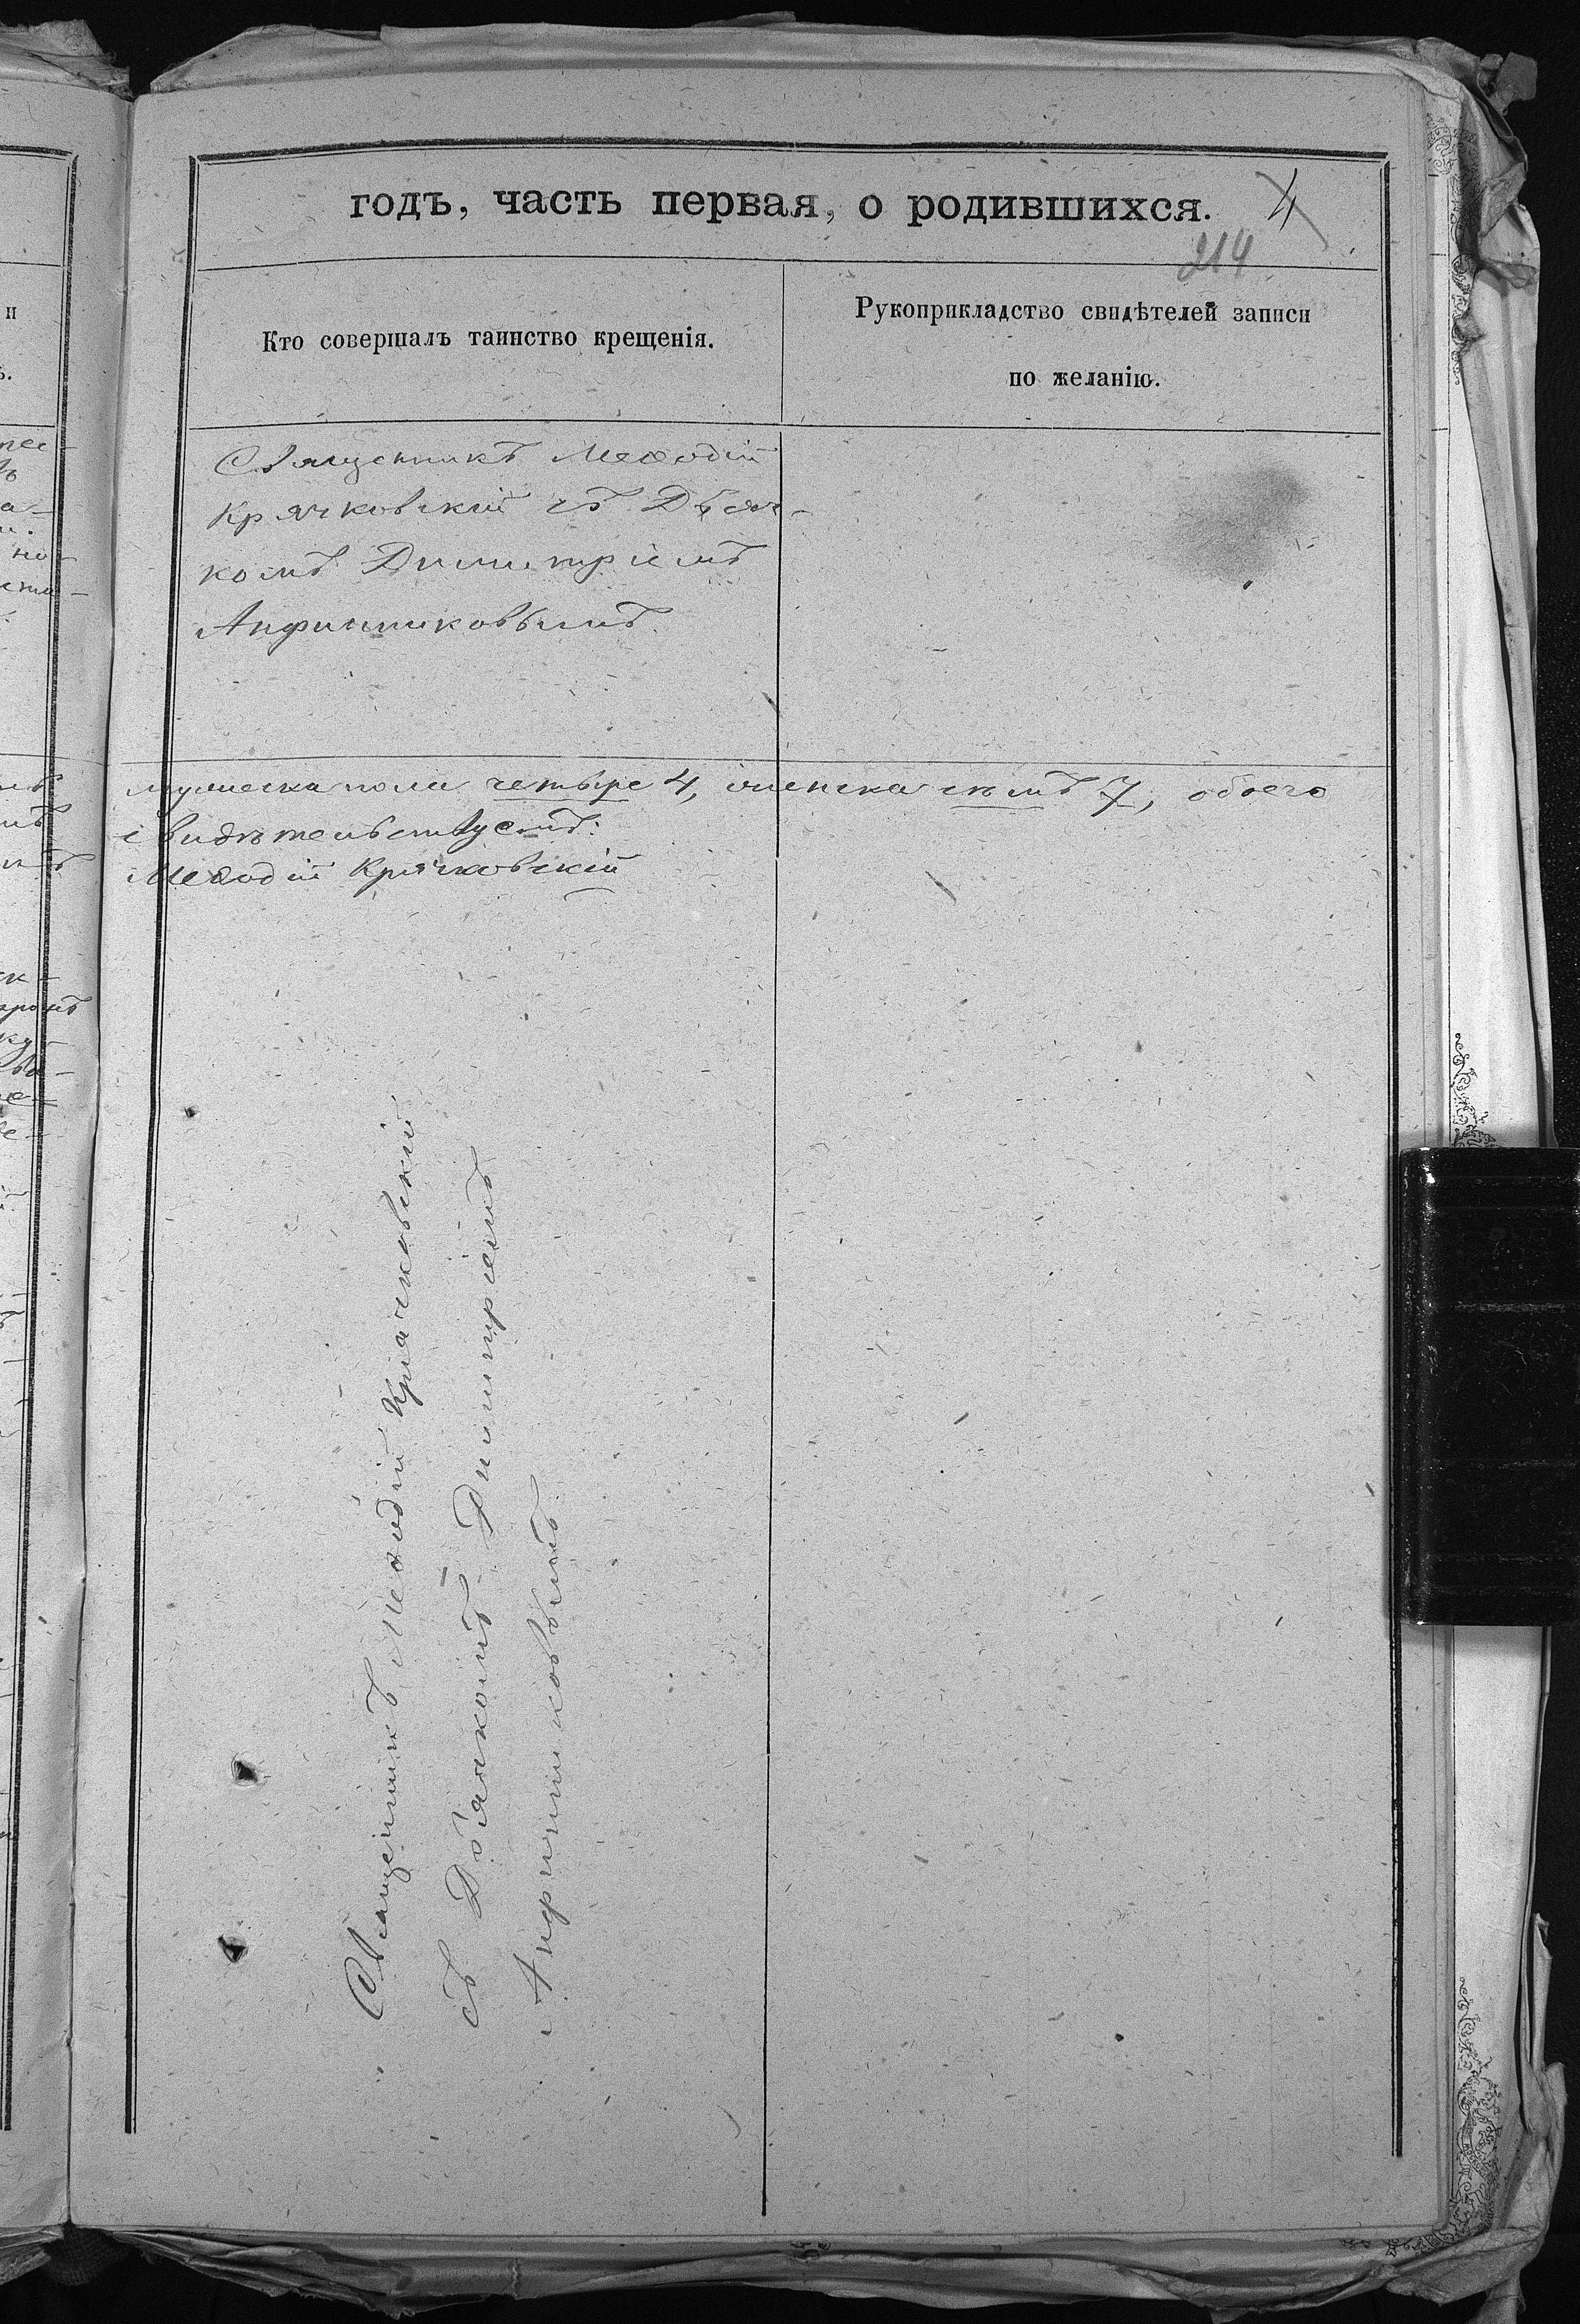 годъ, часть первая, о родившихся. 4
214
Кто совершалъ таинство крещенія.
Рукоприкладство свидѣтелей записи
по желанію.
Священникъ Меѳодій
Крячковскій съ Дьяч-
комъ Димитріемъ
Анфиниковымъ.
мужеска пола четыре 4, женска семь 7, обоего
свидѣтельствуемъ:
Меѳодій Крячковскій
Священникъ Меѳодій Крячковскій
съ Дьякомъ Димитріемъ
Анфиниковымъ